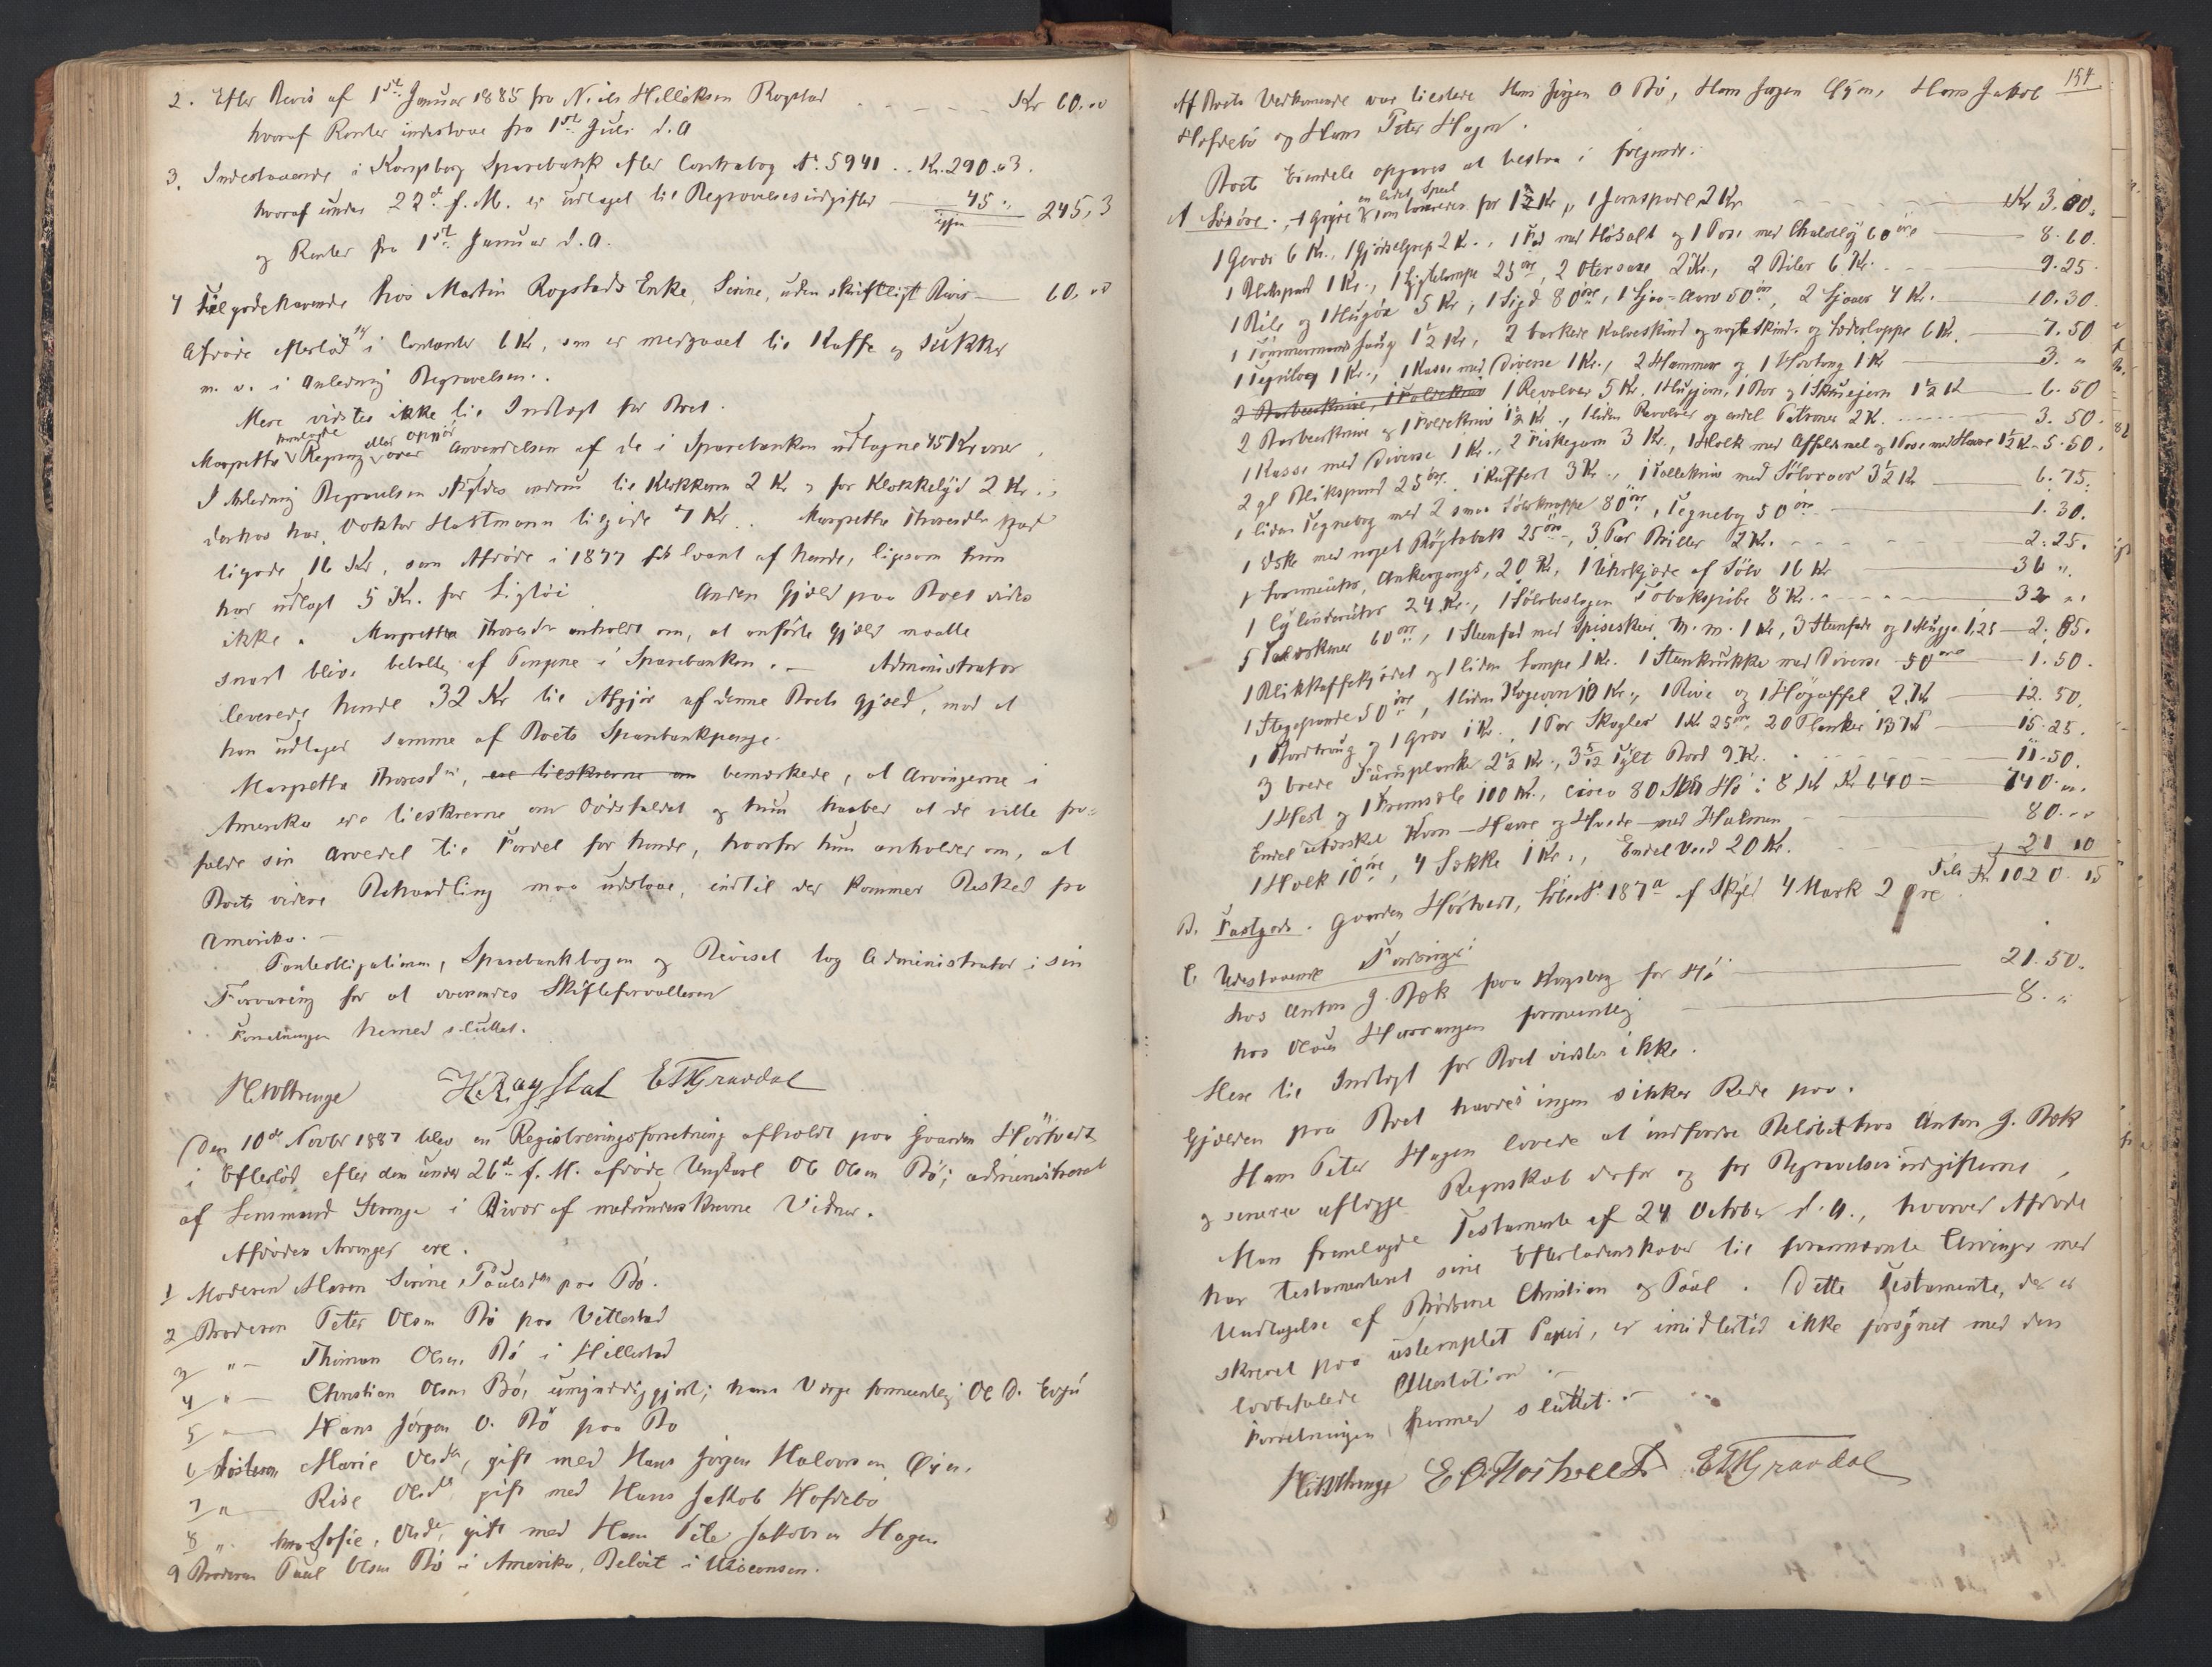 2. Efter Bevis af 1ste Januar 1885 fra Niels Helleksen Rogstad - - - - Kr 60.00
hvoraf Renter indestaae fra 1ste Juli d.A
3. Indestaaende i Kongsberg Sparebank efter Contrabog No. 5941 .. Kr. 290.03.
hvoraf under 22de f. M. er udtaget til Begravelsesudgifter — 45 „ igjen 245,3
og Renter fra 1ste Januar d.A.
4 Tilgodehavende hos Martin Rogstads Enke, Serine, uden skriftligt Bevis — 60.00
Afdøde efterlod i Contanter 6 Kr, som er medgaaet til Kaffe og Sukker
m. v. i Anledning Begravelsen.
Mere vidstes ikke til Indtægt for Boet.
Margrethe fremlagde Regning eller Opgjør over Anvendelsen af de i Sparebanken udtagne 45 Kroner
I Anledning Begravelsen skyldes endnu til Klokkeren 2 Kr og for Klokkelyd 2 Kr.;
derhos har Doktor Hartmann tilgode 7 Kr. Margrethe Thoresdtr har
tilgode 16 Kr, som Afdøde i 1877 fik laant af hende, ligesom hun
har udlagt 5 Kr. for Ligtøi Anden Gjæld paa Boet vides
ikke. Margrethe Thoresdtr anholdt om, at anførte Gjæld maatte
snart blive betalt af Pengene i Sparebanken. — Administrator
leverede hende 32 Kr til Afgjør af denne Boets Gjæld, mod at
han udtager samme af Boets Sparebankpenge.
Margrethe Thoresdtr, ere tilskrevne om bemærkede, at Arvingerne i
Amerika ere tilskrevne om Dødsfaldet og hun haaber at de ville fra-
falde sin Arvedel til Fordel for hende, hvorfor hun anholder om, at
Boets videre Behandling maa udstaae, indtil der kommer Besked fra
Amerika. —
Panteobligationen, Sparebankbogen og Beviset tog Administrator i sin
Forvaring for at oversendes Skifteforvalteren
Forretningen hermed sluttet.
H. Rogstad ETHGravdal
Den 10de Novbr 1887 blev en Registreringsforretning afholdt paa Gaarden Hørtvedt
i Efterlod efter den under 26de f. M. afdøde Ungkarl Ole Olsen Bø; administreret
af Lensmand Strenge i Nærvær af medunderskrevne Vidner.
Afdødes Arvinger ere.
1 Moderen Maren Serine Paulsdtr paa Bø.
2 Broderen Peter Olsen Bø paa Villestad
3 „ — Thomas Olsen Bø i Hillestad
4 „ — Christian Olsen Bø, umyndiggjort; hans Værge formentlig Ole D. Evju
5 „ — Hans Jørgen O. Bø paa Bø
6 Søsteren Marie Olsdtr, gift med Hans Jørgen Halvorsen Øyen.
7 „ — Rise Olsdtr gift med Hans Jakob Hofdebø
8 „ Sofie, Olsdtr, gift med Hans Peter Jakobsen Hagen
9 Broderen Paul Olsen Bø i Amerika, Beloit i Wisconsen.
154
Af Boets Vedkommende var tilstede Hans Jørgen O Bø, Hans Jørgen Øyen, Hans Jakob
Hofdebø og Hans Peter Hagen.
Boets Eiendele opgaves at bestaa i følgende:
A Løsøre. 1 Gryde en liden Speil for 1½ Kr „ 1 Jernspade 2 Kr - - - - Kr 3.50.
1 Gevær 6 Kr., 1 Gjødselgreb 2 K., 1 Fad med Høsalt og 1 Pose 60 øre — 8.60.
1 Blikspand 1 Kr., 1 Lygtelampe 25 øre, 2 Otersaxe 2 Kr., 2 Biler 6 Kr. — 9.25
1 Bile og 1 Hugøx 5 Kr, 1 Sigd 80 øre, 1 Ljaa-Aarv 50 øre, 2 Ljaaer 4 Kr. — 10.30.
1 Tømmermands Saug 1½ Kr, 2 barkede Kalveskind og nogle Skind- og Læderlappe 6 Kr. — 7.50
1 Kr., 1 Kasse med Diverse 1 Kr., 2 Hammer og 1 Hovtang 1 Kr — 3. „
2 Barberknive, 1 Foldekniv 1 Revolver 5 Kr. 1 Hugjern, 1 Bor og 1 Skruejern 1½ K — 6.50
2 Barberknive og 1 Foldekniv 1½ Kr., 1 liden Revolver og endel Patroner 2 K. — 3.50.
1 Kasse med Diverse 1 Kr., 2 Fiskegarn 3 Kr., 1 Holk med Affaldsmel og 1 Pose med Havre 1½ K — 5.50.
2 gl Blikspand 25 øre. 1 Kuffert 3 Kr., 1 Tollekniv med Sølvroer 3½ Kr — 6.75.
1 liden Tegnebog med 2 smaa Sølvknappe 80 øre, Tegnebog 50 øre — 1.30.
1 Æske med noget Røgtobak 25 øre, 3 Par Briller 2 Kr. — 2.25.
1 Lommeuhr, Ankergangs, 20 Kr, 1 Uhrkjæde af Sølv 16 Kr — 36 „.
1 Cylinderuhr 24 Kr., 1 Sølvbeslagen Tobakspibe 8 Kr. — 32 „.
5 Tallerkener 60 øre, 1 Steenfad med Spiseskeer m. m. 1 Kr, 3 Steenfade og 1 Mugge 1,25 — 2.85.
1 Blikkaffekjedel og 1 liden Lampe 1 Kr. 1 Steenkrukke med Diverse 50 øre — 1.50.
1 Stegepande 50 øre, 1 liden Kogeovn 10 Kr., 1 Rive og 1 Høgaffel 2 Kr — 12.50.
1 Bordtraug og 1 Grev 1 Kr. 1 Par Skagler 1 Kr 25 øre, 20 Planker 13 Kr — 15.25.
3 brede Furuplanker 2½ Kr., 3 5/12 Tylt Bord 9 Kr. — 11.50.
1 Hest og 1 Fremsæle 100 Kr., circa 80 Sk℔ Hø à 8 Kr Kr 640 = 740 „.
Endel utærsket Korn — Havre og Hvede — med Halmen — 80 „
1 Holk 10 øre, 4 Sække 1 Kr., Endel Ved 20 Kr. — 21 10
Tils Kr. 1020. 15
B. Fastgods. Gaarden Hørtvedt, Løbe No. 187a af Skyld 4 Mark 2 Øre
C Udestaaende Fordringer:
hos Anton G. Bæk paa Kongsberg for Hø — 21.50.
hos Olaus formentlig — 8. „
Mere til Indtægt for Boet vidstes ikke.
Gjælden paa Boet havdes ingen sikker Rede paa.
Hans Peter Hagen lovede at indfordre Beløbet hos Anton G. Bæk
og senere aflægge Regnskab derfor og for Begravelsesudgifterne,
Man fremlagde Testamente af 24 October d. A., hvorved Afdøde
har testamenteret sine Efterladenskaber til forannævnte Arvinger med
Undtagelse af Brødrene Christian og Paal. Dette Testamente, der er
skrevet paa ustemplet Papir, er imidlertid ikke forsynet med den
lovbefalede Attestation. —
Forretningen hermed sluttet. —
ETHGravdal